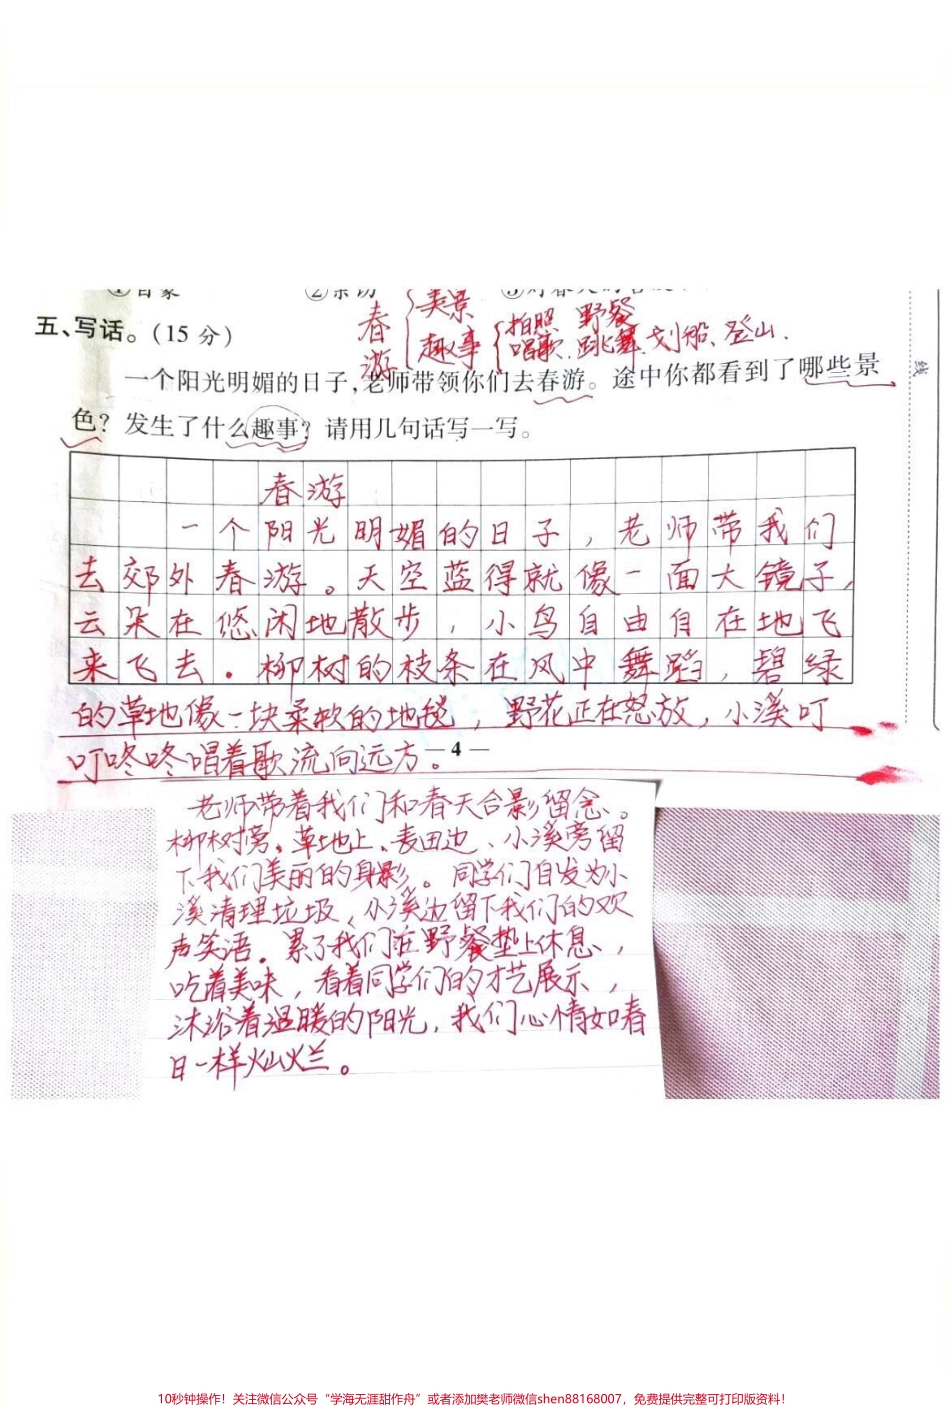 ①自豪
②亲切
春游
美景
趣事
拍照 野餐
唱歌.跳舞.划船、登山.
五、写话。(15 分)
一个阳光明媚的日子,老师带领你们去春游。途中你都看到了哪些景
色?发生了什么趣事?请用几句话写一写。
线
春游
一个阳光明媚的日子,老师带我们
去郊外春游。天空蓝得就像一面大镜子,
云朵在悠闲地散步,小鸟自由自在地飞
来飞去.柳树的枝条在风中舞蹈,碧绿
的草地像一块柔软的地毯,野花正在怒放,小溪叮
叮咚咚唱着歌流向远方。
— 4 —
老师带着我们和春天合影留念。
柳树旁、草地上、麦田边、小溪旁留
下我们美丽的身影。同学们自发为小
溪清理垃圾,小溪边留下我们的欢
声笑语.累了我们在野餐垫上休息,
吃着美味,看着同学们的才艺展示,
沐浴着温暖的阳光,我们心情如春
日一样灿烂。
10秒钟操作!关注微信公众号“学海无涯甜作舟”或者添加樊老师微信shen88168007,免费提供完整可打印版资料!